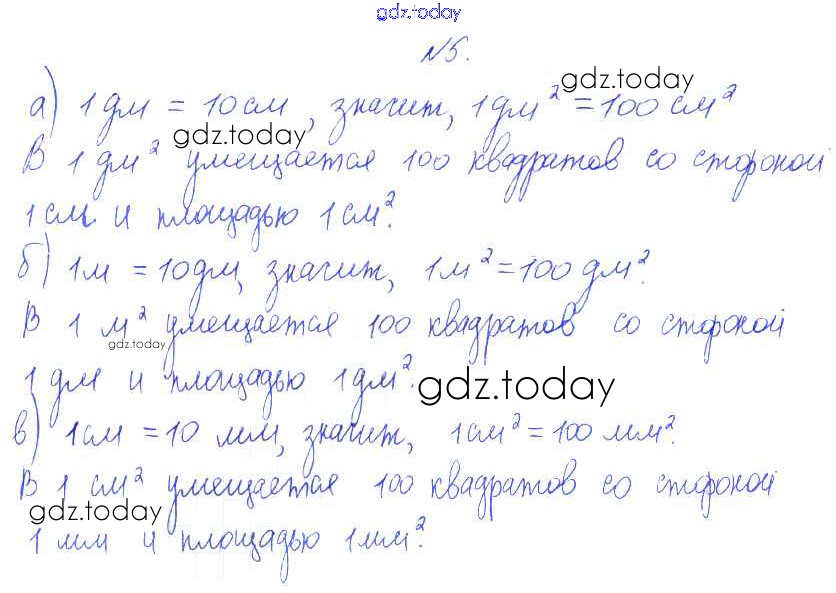 gdz.today
№5.
gdz.today
а) 1 дм = 10 см, значит, 1 дм² = 100 см²
gdz.today
В 1 дм² умещается 100 квадратов со стороной
1 см и площадью 1 см².
б) 1 м = 10 дм, значит, 1 м² = 100 дм².
В 1 м² умещается 100 квадратов со стороной
gdz.today
1 дм и площадью 1 дм².
gdz.today
в) 1 см = 10 мм, значит, 1 см² = 100 мм².
В 1 см² умещается 100 квадратов со стороной
gdz.today
1 мм и площадью 1 мм².